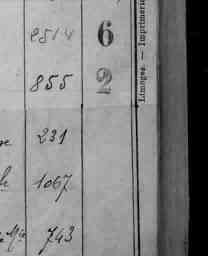 8514 6
855 2
Limoges. — Imprimeri
231
1067
743